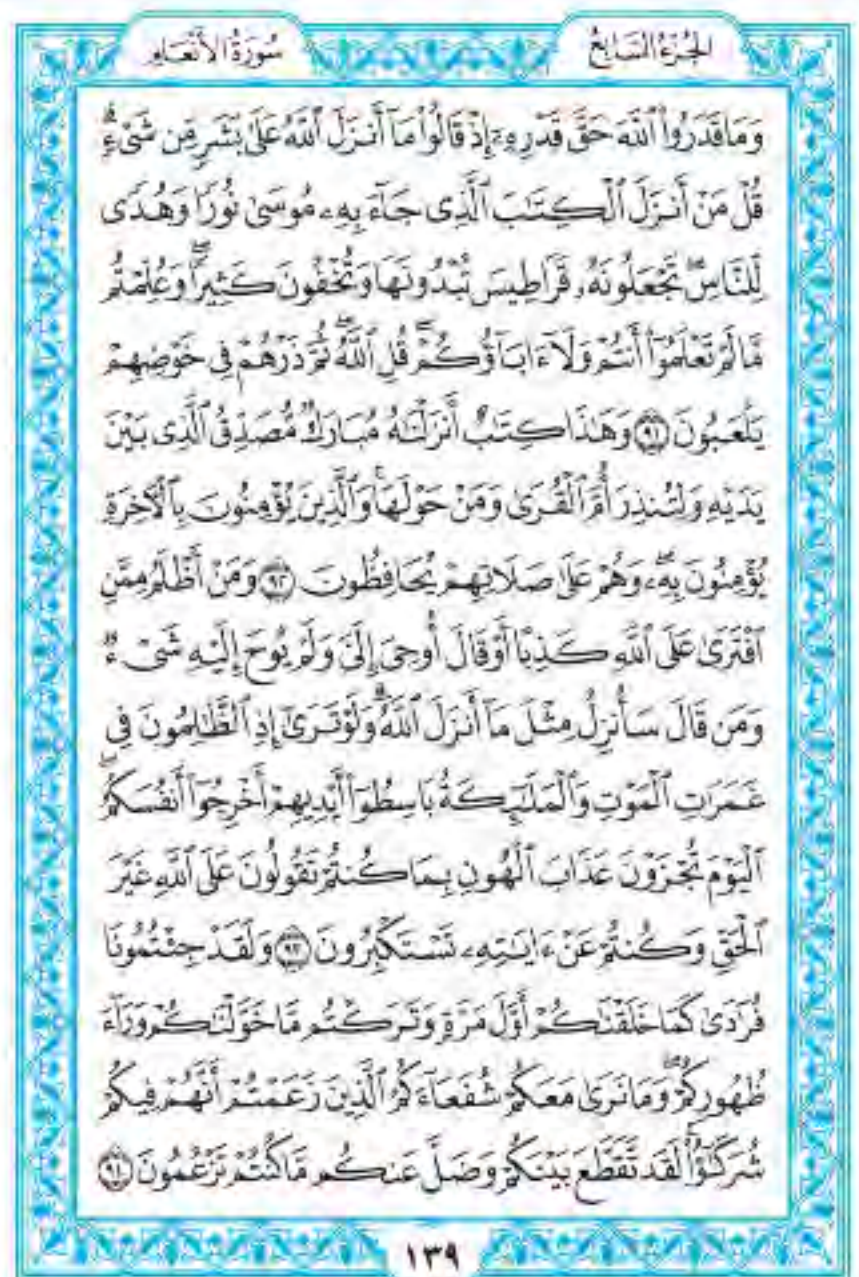 الجُزْءُ السَّابِعُ
سُورَةُ الأَنْعَامِ
وَمَا قَدَرُوا۟ ٱللَّهَ حَقَّ قَدْرِهِۦٓ إِذْ قَالُوا۟ مَآ أَنزَلَ ٱللَّهُ عَلَىٰ بَشَرٍ مِّن شَىْءٍ ۗ
قُلْ مَنْ أَنزَلَ ٱلْكِتَـٰبَ ٱلَّذِى جَآءَ بِهِۦ مُوسَىٰ نُورًا وَهُدًى
لِّلنَّاسِ ۖ تَجْعَلُونَهُۥ قَرَاطِيسَ تُبْدُونَهَا وَتُخْفُونَ كَثِيرًا ۖ وَعُلِّمْتُم
مَّا لَمْ تَعْلَمُوٓا۟ أَنتُمْ وَلَآ ءَابَآؤُكُمْ ۖ قُلِ ٱللَّهُ ۖ ثُمَّ ذَرْهُمْ فِى خَوْضِهِمْ
يَلْعَبُونَ ۝٩١ وَهَـٰذَا كِتَـٰبٌ أَنزَلْنَـٰهُ مُبَارَكٌ مُّصَدِّقُ ٱلَّذِى بَيْنَ
يَدَيْهِ وَلِتُنذِرَ أُمَّ ٱلْقُرَىٰ وَمَنْ حَوْلَهَا ۚ وَٱلَّذِينَ يُؤْمِنُونَ بِٱلْـَٔاخِرَةِ
يُؤْمِنُونَ بِهِۦ ۖ وَهُمْ عَلَىٰ صَلَاتِهِمْ يُحَافِظُونَ ۝٩٢ وَمَنْ أَظْلَمُ مِمَّنِ
ٱفْتَرَىٰ عَلَى ٱللَّهِ كَذِبًا أَوْ قَالَ أُوحِىَ إِلَىَّ وَلَمْ يُوحَ إِلَيْهِ شَىْءٌ
وَمَن قَالَ سَأُنزِلُ مِثْلَ مَآ أَنزَلَ ٱللَّهُ ۗ وَلَوْ تَرَىٰٓ إِذِ ٱلظَّـٰلِمُونَ فِى
غَمَرَٰتِ ٱلْمَوْتِ وَٱلْمَلَـٰٓئِكَةُ بَاسِطُوٓا۟ أَيْدِيهِمْ أَخْرِجُوٓا۟ أَنفُسَكُمُ ۖ
ٱلْيَوْمَ تُجْزَوْنَ عَذَابَ ٱلْهُونِ بِمَا كُنتُمْ تَقُولُونَ عَلَى ٱللَّهِ غَيْرَ
ٱلْحَقِّ وَكُنتُمْ عَنْ ءَايَـٰتِهِۦ تَسْتَكْبِرُونَ ۝٩٣ وَلَقَدْ جِئْتُمُونَا
فُرَٰدَىٰ كَمَا خَلَقْنَـٰكُمْ أَوَّلَ مَرَّةٍ وَتَرَكْتُم مَّا خَوَّلْنَـٰكُمْ وَرَآءَ
ظُهُورِكُمْ ۖ وَمَا نَرَىٰ مَعَكُمْ شُفَعَآءَكُمُ ٱلَّذِينَ زَعَمْتُمْ أَنَّهُمْ فِيكُمْ
شُرَكَـٰٓؤُا۟ ۚ لَقَد تَّقَطَّعَ بَيْنَكُمْ وَضَلَّ عَنكُم مَّا كُنتُمْ تَزْعُمُونَ ۝٩٤
١٣٩